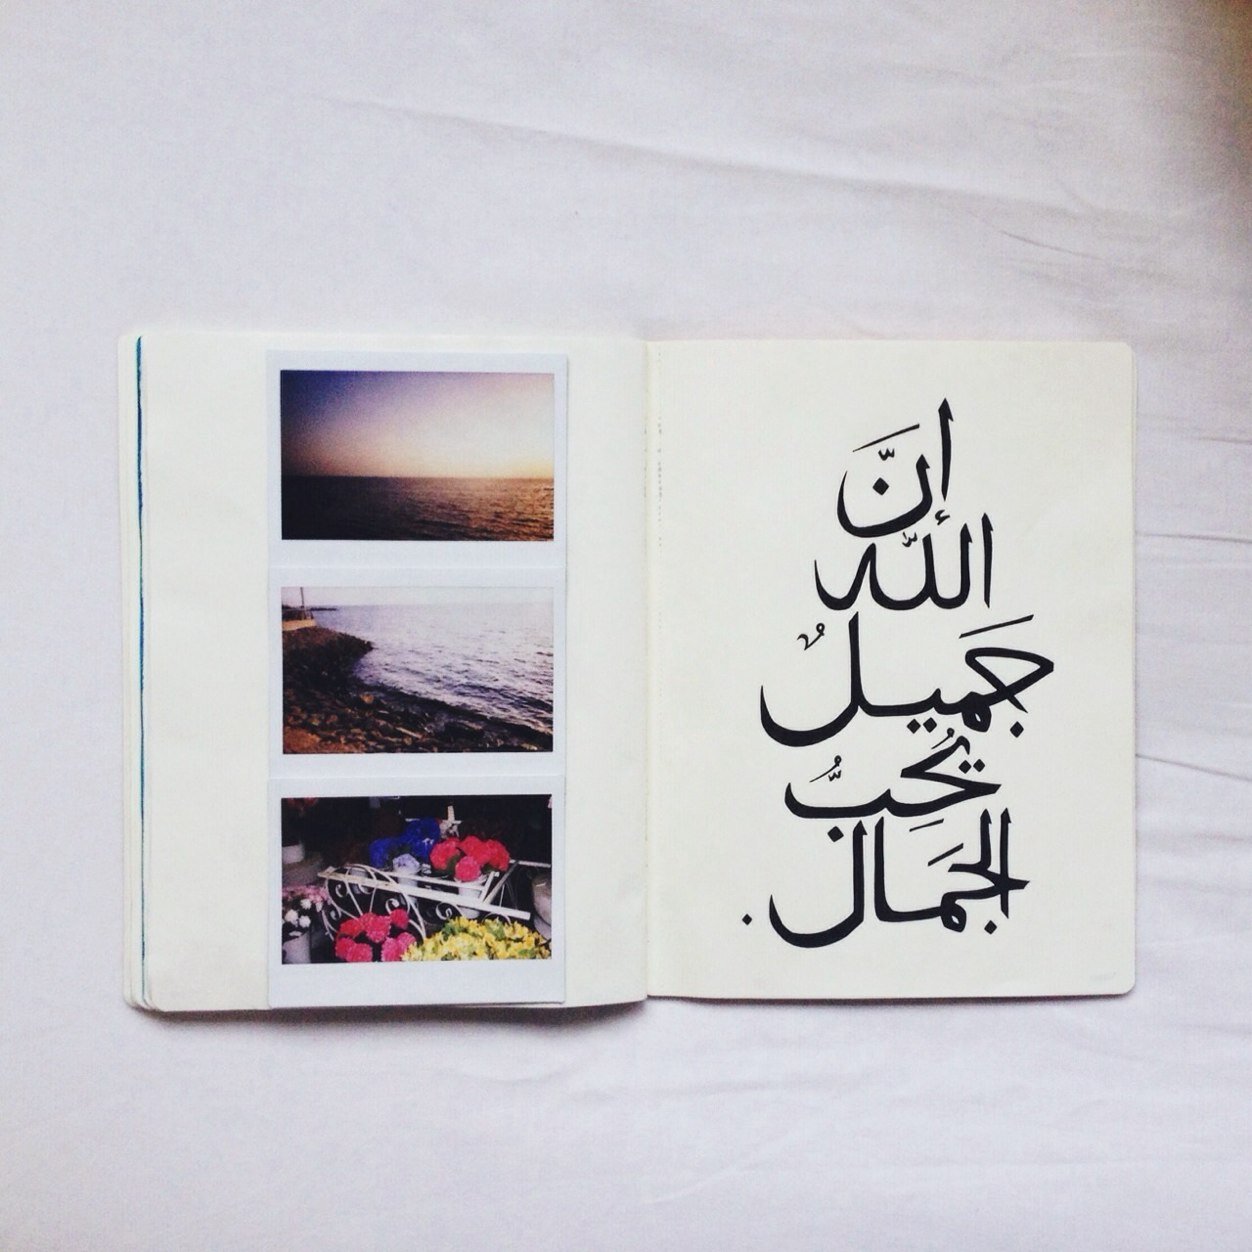 إنَّ
اللّه
جَميلٌ
يُحِبُّ
الجَمَال.